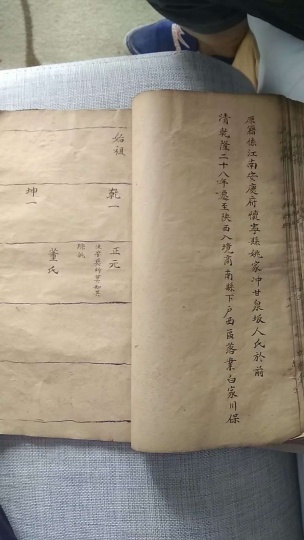 原籍係江南安慶府懷寧縣姚家冲甘泉坂人氏於前
清乾隆二十八年惷至陜西入境商南縣下戶西區落業白家川保
始祖
乾一
坤一
正元
董氏